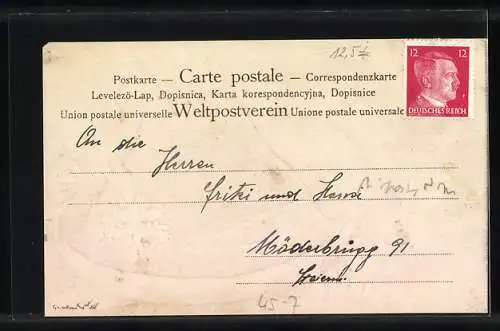 12,5
Postkarte — Carte postale — Correspondenzkarte
12 12
Levelező-Lap, Dopisnica, Karta korespondencyjna, Dopisnice
Union postale universelle Weltpostverein Unione postale universale
DEUTSCHES REICH
An die
Herren
Fritzi und Hansi
Möderbrugg 91
45-7